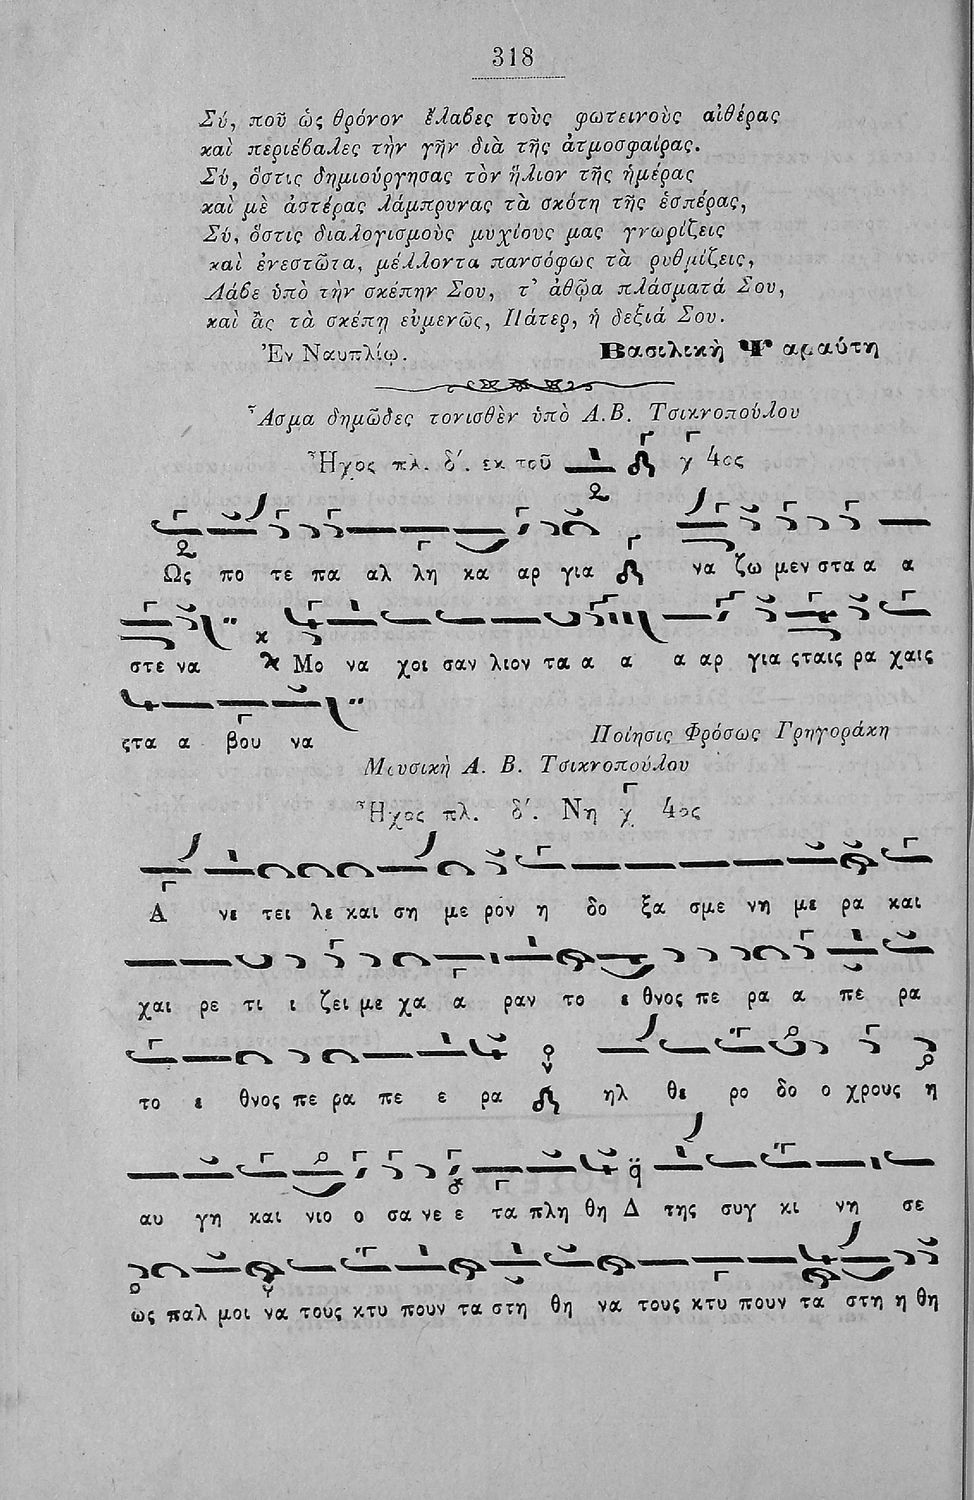 318
Σύ, ποῦ ὡς θρόνον ἔλαβες τοὺς φωτεινοὺς αἰθέρας
καὶ περιέβαλες τὴν γῆν διὰ τῆς ἀτμοσφαίρας.
Σύ, ὅστις δημιούργησας τὸν ἥλιον τῆς ἡμέρας
καὶ μὲ ἀστέρας λάμπρυνας τὰ σκότη τῆς ἑσπέρας,
Σύ, ὅστις διαλογισμοὺς μυχίους μας γνωρίζεις
καὶ ἐνεστῶτα, μέλλοντα πανσόφως τὰ ρυθμίζεις,
Λάβε ὑπὸ τὴν σκέπην Σου, τ' ἀθῷα πλάσματά Σου,
καὶ ἂς τὰ σκέπῃ εὐμενῶς, Πάτερ, ἡ δεξιά Σου.
Ἐν Ναυπλίῳ. Βασιλικὴ Ψαραύτη
Ἆσμα δημῶδες τονισθὲν ὑπὸ Α.Β. Τσικνοπούλου
Ἦχος πλ. δ'. εκ τοῦ χ 4ος
Ως πο τε πα αλ λη κα αρ για να ζω μεν στα α α
στε να Μο να χοι σαν λιον τα α α α αρ για ςταις ρα χαις
ςτα α βου να
Ποίησις Φρόσως Γρηγοράκη
Μουσικὴ Α. Β. Τσικνοπούλου
Ἦχος πλ. δ'. Νη χ 4ος
Α νε τει λε και ση με ρον η δο ξα σμε νη με ρα και
χαι ρε τι ι ζει με χα α ραν το ε θνος πε ρα α πε ρα
το ε θνος πε ρα πε ε ρα ηλ θε ρο δο ο χρους η
αυ γη και νιο ο σα νε ε τα πλη θη Δ της συγ κι νη σε
ως παλ μοι να τους κτυ πουν τα στη θη να τους κτυ πουν τα στη η θη